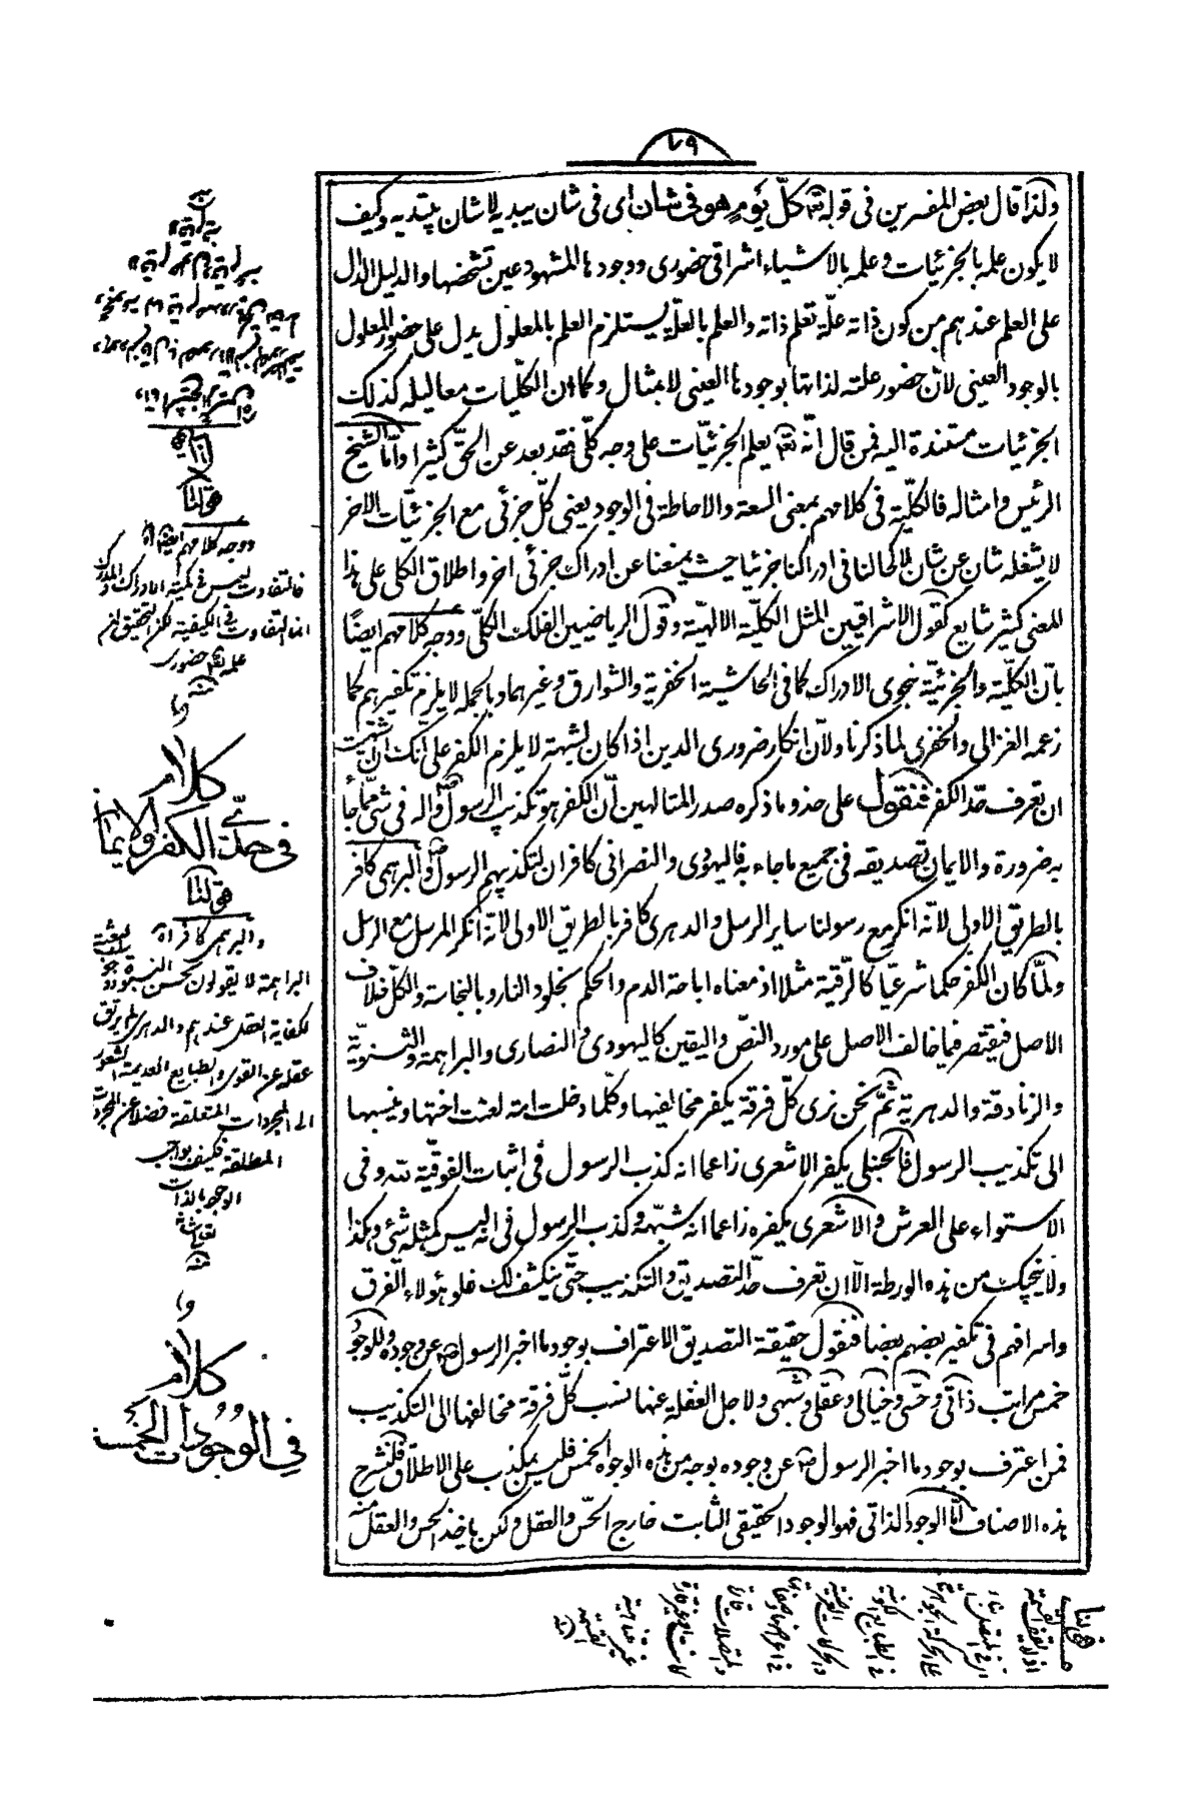 ٧٩
ولذا قال بعض المفسرين فى قوله تعه كلّ يؤمٍ هو فى شان اى فى شان يبديه لا شان يبتديه وكيف
لا يكون علمه بالجزئيات وعلمه بالاشياء اشراقى حضورى ووجودها المشهود عين تشخصها والدليل الدال
على العلم عندهم من كون ذاته علّة تعلم ذاته والعلم بالعلّة يستلزم العلم بالمعلول يدل على حضور المعلول
بالوجود العينى لانّ حضور علته لذاتها بوجودها العينى لا بمثال وكما ان الكلّيات معاليله كذلك
الجزئيات مستندة اليه فمن قال انّه تعه يعلم الجزئيّات على وجه كلّى فقد بعد عن الحقّ كثيرا وامّا الشيخ
الرئيس وامثاله فالكليّة فى كلامهم بمعنى السعة والاحاطة فى الوجود يعنى كلّ جزئى مع الجزئيّات الاخر
لا يشغله شان عن شان لا كحالنا فى ادراكنا جزئيا حيث يمنعنا عن ادراك جزئى اخر واطلاق الكلى على هذا
المعنى كثير شايع كقول الاشراقيين المثل الكليّة الالهيّة وقول الرياضيين الفلك الكلّى ووجه كلامهم ايضًا
بانّ الكليّة والجزئيّة بنحوى الادراك كما فى الحاشية الخفرية والشوارق وغيرهما وبالجمله لا يلزم تكفيرهم كما
زعمه الغزالى والخفرى لما ذكرنا ولانّ انكار ضرورى الدين اذا كان لشبهة لا يلزم الكفر على انّك ان شئت
ان تعرف حدّ الكفر فنقول على حذو ما ذكره صدر المتالهين انّ الكفر هو تكذيب الرسول ص واله فى شئ ممّا جاء
به ضرورة والايمان تصديقه فى جميع ما جاء به فاليهودى والنصرانى كافران لتكذيبهم الرسول ص والبرهمى كافر
بالطريق الاولى لانّه انكر مع رسولنا ساير الرسل والدهرى كافر بالطريق الاولى لانّه انكر المرسل مع الرسل
ولمّا كان الكفر حكما شرعيّا كالرّقيّة مثلا اذ معناه اباحة الدم والحكم بخلود النار وبالنجاسة والكلّ خلاف
الاصل فيقتصر فيما خالف الاصل على مورد النصّ واليقين كاليهودى والنصارى والبراهمة والثنويّة
والزنادقة والدهرية ثمّ نحن نرى كلّ فرقة يكفر مخالفيها وكلّما دخلت امة لعنت اختها وينسبها
الى تكذيب الرسول فالحنبلى يكفر الاشعرى زاعما انه كذب الرسول فى اثبات الفوقيّة لله وفى
الاستواء على العرش والاشعرى يكفره زاعما انه شبّهه وكذب الرسول فى انه ليس كمثله شئ وهكذا
ولا ينجيك من هذه الورطة الّا ان تعرف حدّ التصديق والتكذيب حتّى ينكشف لك غلو هولاء الفرق
واسرافهم فى تكفير بعضهم بعضا فنقول حقيقة التصديق الاعتراف بوجود ما اخبر الرسول ص عن وجوده وللوجود
خمس مراتب ذاتى وحسّى وخيالى وعقلى وشبهى ولاجل الغفلة عنها نسب كلّ فرقة مخالفها الى التكذيب
فمن اعترف بوجود ما اخبر الرسول ص عن وجوده بوجه من هذه الوجوه الخمس فليس بمكذب على الاطلاق فلنشرح
هذه الاصناف امّا الوجود الذاتى فهو الوجود الحقيقى الثابت خارج الحسّ والعقل ولكن ياخذ الحس والعقل منه
قولنا
ووجه كلامهم ايضا اه
فالتفاوت ليس فى كمية الادراك والمدرك
انما التفاوت فى الكيفية لكن التحقيق ان
علمه تعه حضورى
منه
كلام
فى حدّى الكفر والايمان
قولنا
والبرهمى كافر اه
البراهمة لا يقولون بحسن النبوة
لكفاية العقل عندهم والدهرى لم يرتق
عقله عن القوى والطبايع العديمة الشعور
الى المجردات المتعلقة فضلا عن المجردات
المطلقة فكيف بواجب
الوجود بالذات
تعالى شانه
منه
كلام
فى الوجودات الخمسة
قولنا